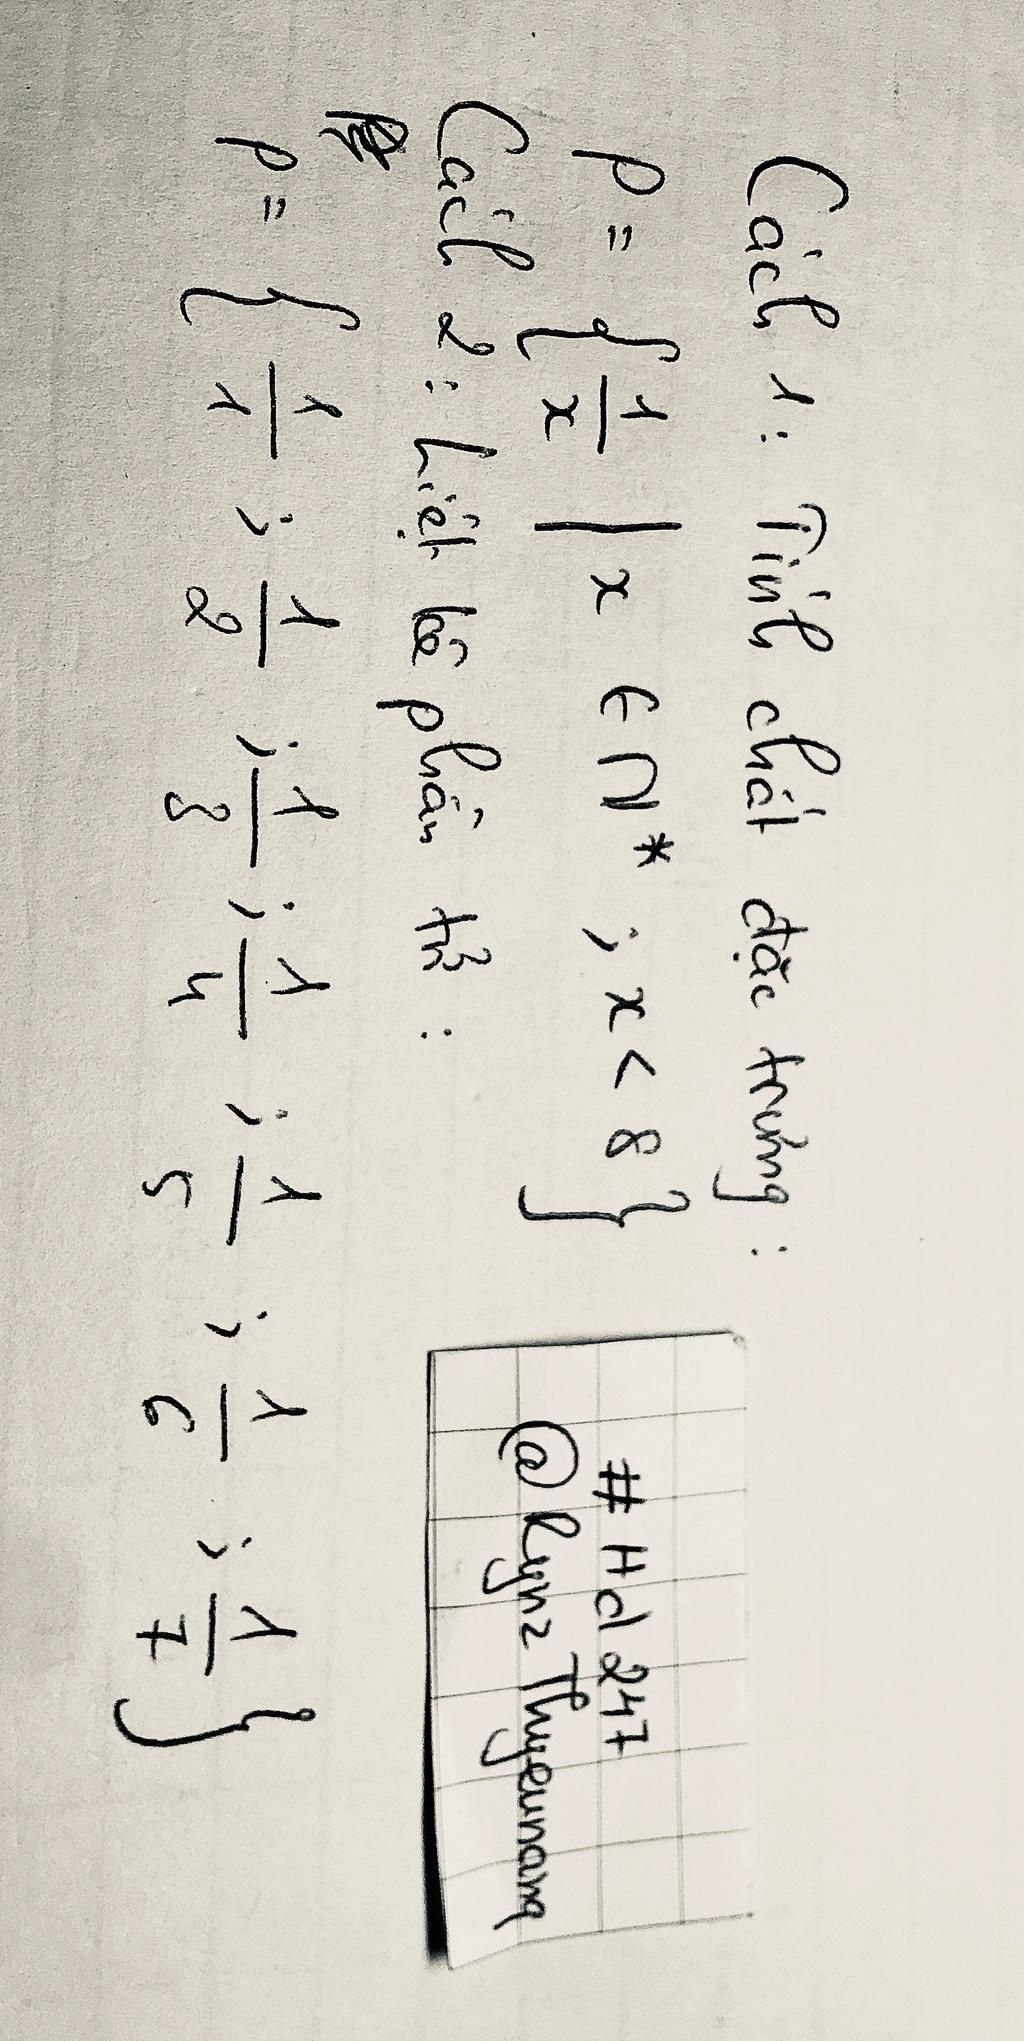 Cách 1: Tính chất đặc trưng:
P = { 1/x | x ∈ N* ; x < 8 }
Cách 2: Liệt kê phần tử:
P = { 1/1 ; 1/2 ; 1/3 ; 1/4 ; 1/5 ; 1/6 ; 1/7 }
# Hd 247
@ Rynz Thyeunang